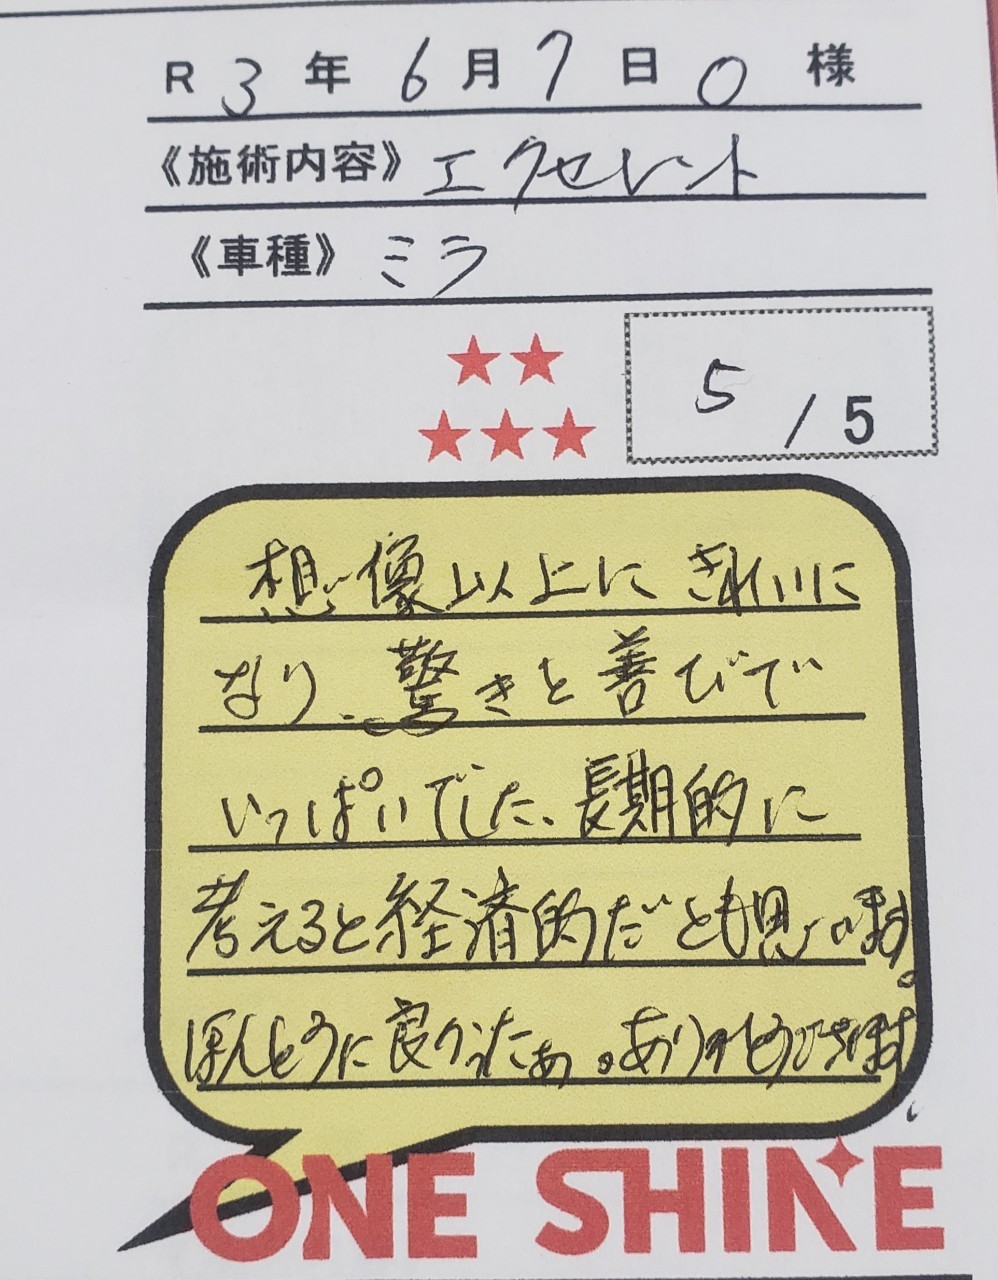 R 3 年 6 月 7 日 O 様
《施術内容》エクセレント
《車種》ミラ
5 / 5
想像以上に きれいに
なり、驚きと喜びで
いっぱいでした、長期的に
考えると経済的だとも思います。
ほんとうに良かったぁ。ありがとうございます
ONE SHINE